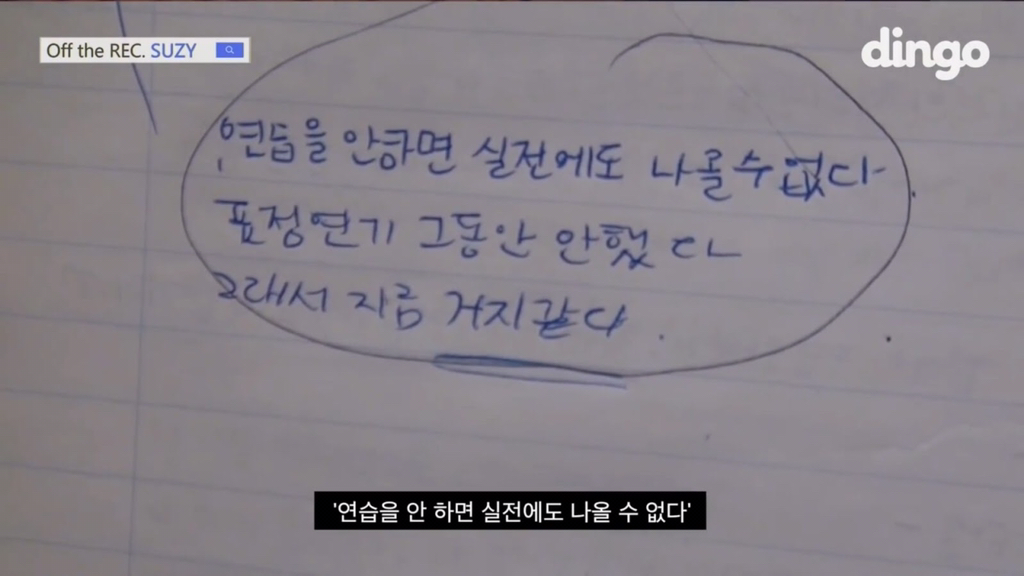 Off the REC. SUZY
dingo
연습을 안하면 실전에도 나올수 없다
표정연기 그동안 안했다
그래서 지금 거지같다.
'연습을 안 하면 실전에도 나올 수 없다'